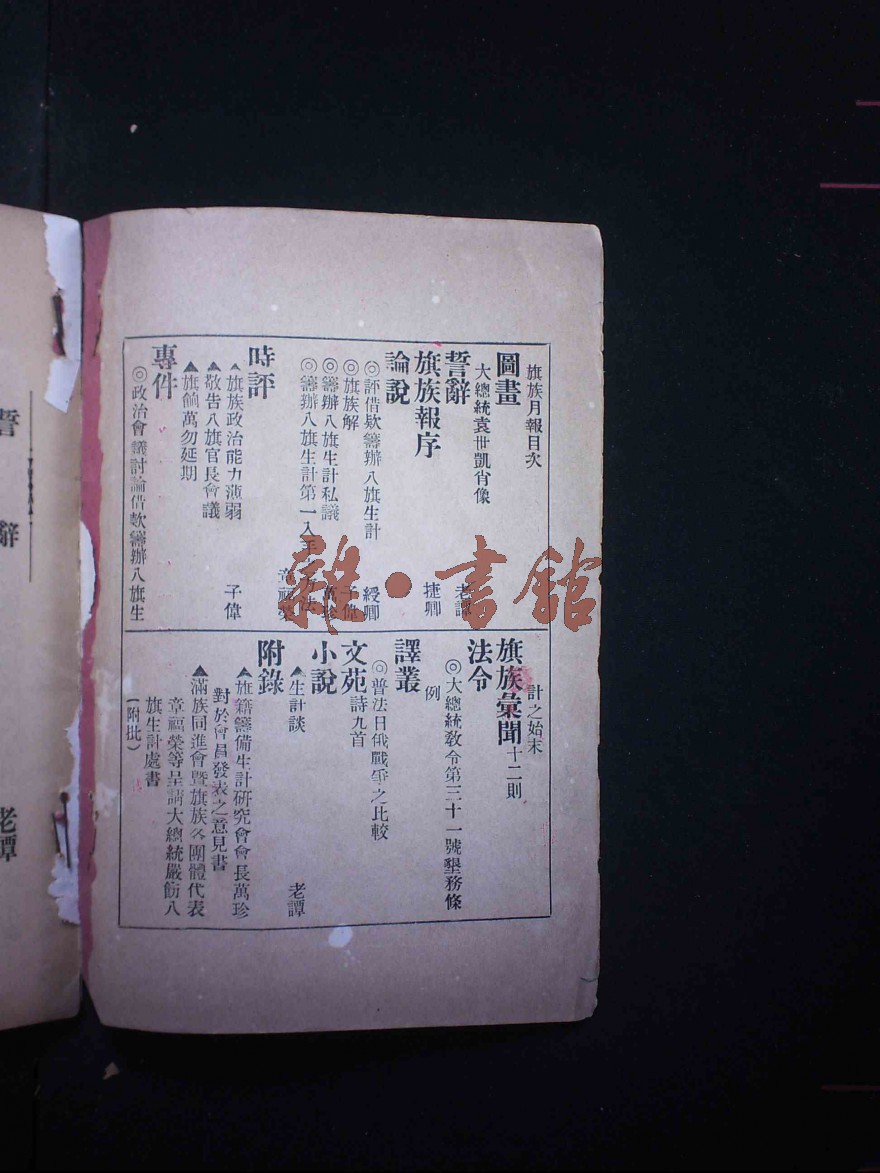 旗族月報目次
圖畫
大總統袁世凱肖像
誓辭 老譚
旗族報序 捷卿
論說
◎評借欵籌辦八旗生計 綬卿
◎旗族解 子偉
◎籌辦八旗生計私議 萬珍
◎籌辦八旗生計第一入手之方法 章福榮
時評
▲旗族政治能力薄弱 子偉
▲敬告八旗官長會議
▲旗餉萬勿延期
專件
◎政治會議討論借欵籌辦八旗生
計之始末
旗族彙聞 十二則
法令
◎大總統敎令第三十一號墾務條
例
譯叢
◎普法日俄戰爭之比較
文苑 詩九首
小說
▲生計談 老譚
附錄
▲旗籍籌備生計硏究會會長萬珍
對於會員發表之意見書
▲滿族同進會暨旗族各團體代表
章福榮等呈請大總統嚴飭八
旗生計處書
(附批)
誓 辭 老譚
雜·書館